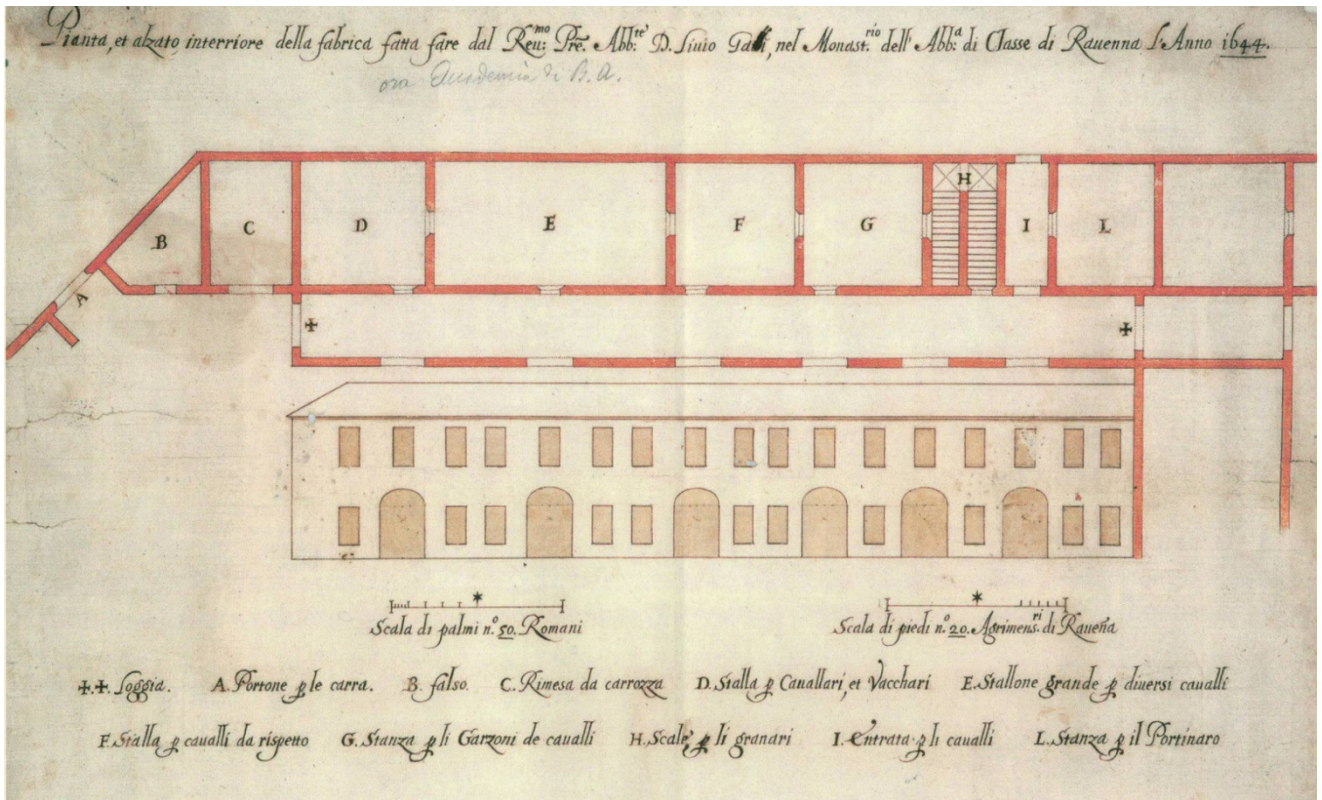 Pianta, et alzato interiore della fabrica fatta fare dal Reu:mo Pre. Abb:te D. Liuio Galli, nel Monast:rio dell' Abb:a di Classe di Rauenna L'Anno 1644.
ora Accademia di B. A.
H
B
C
D
E
F
G
I
L
A
✠
✠
Scala di palmi n.o 50. Romani
Scala di piedi n.o 20. Agrimens:ri di Raueña
✠.✠. Loggia. A. Portone p le carra. B. falso. C. Rimesa da carrozza D. Stalla p Cauallari, et Vacchari E. Stallone grande p diuersi caualli
F. Stalla p caualli da rispetto G. Stanza p li Garzoni de caualli H. Scale p li granari I. Entrata p li caualli L. Stanza p il Portinaro